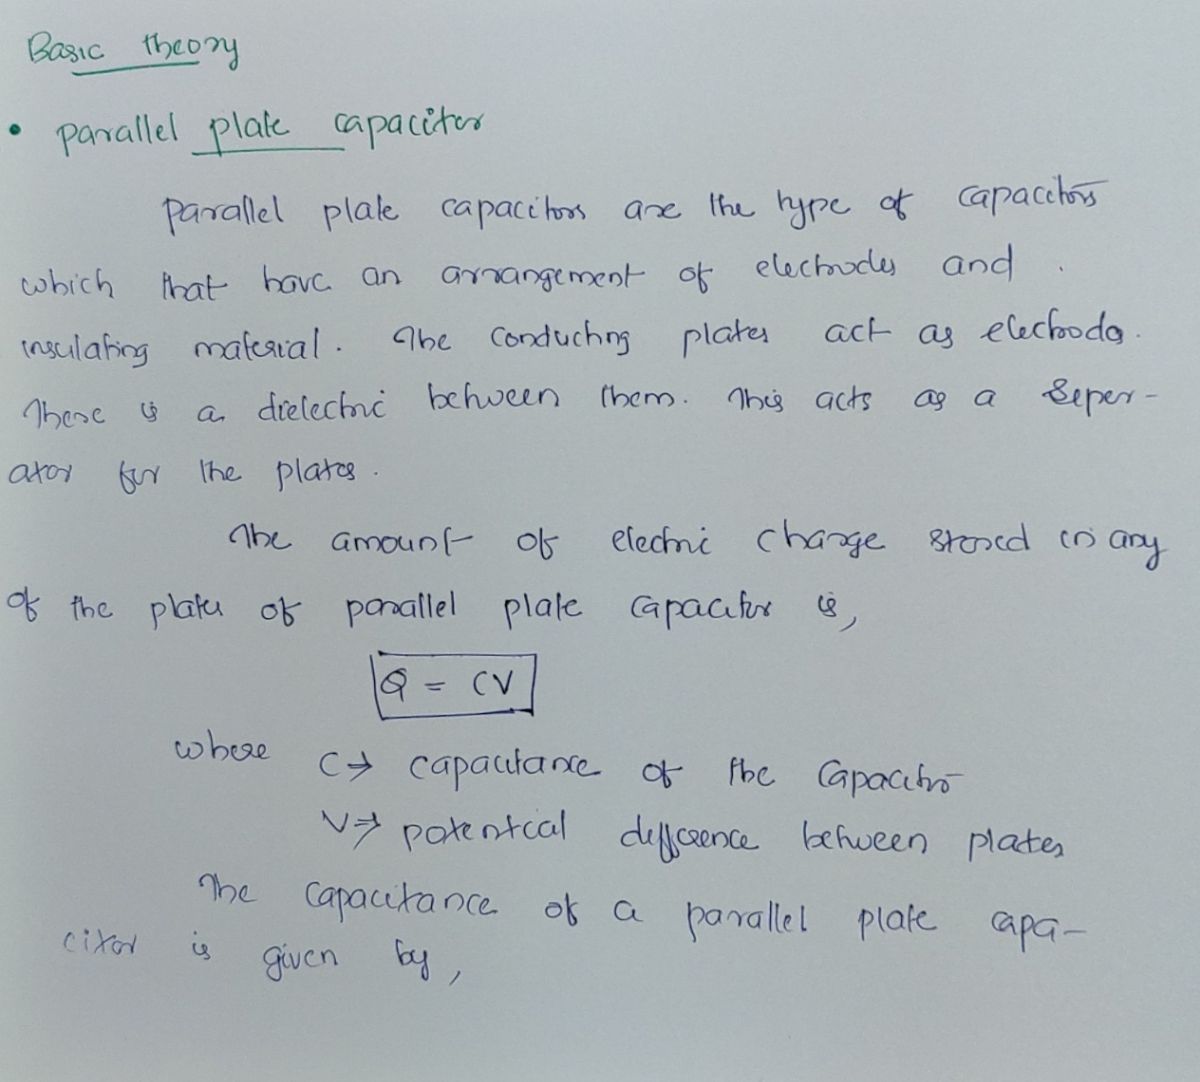 Basic theory
• parallel plate capacitor
parallel plate capacitors are the type of capacitors
which that have an arrangement of electrodes and
insulating material. The conducting plates act as electrodes.
There is a dielectric between them. This acts as a seper-
ator for the plates.
The amount of electric charge stored in any
of the plates of parallel plate capacitor is,
Q = CV
where C → capacitance of the capacitor
V → potential difference between plates
The capacitance of a parallel plate capa-
citor is given by,